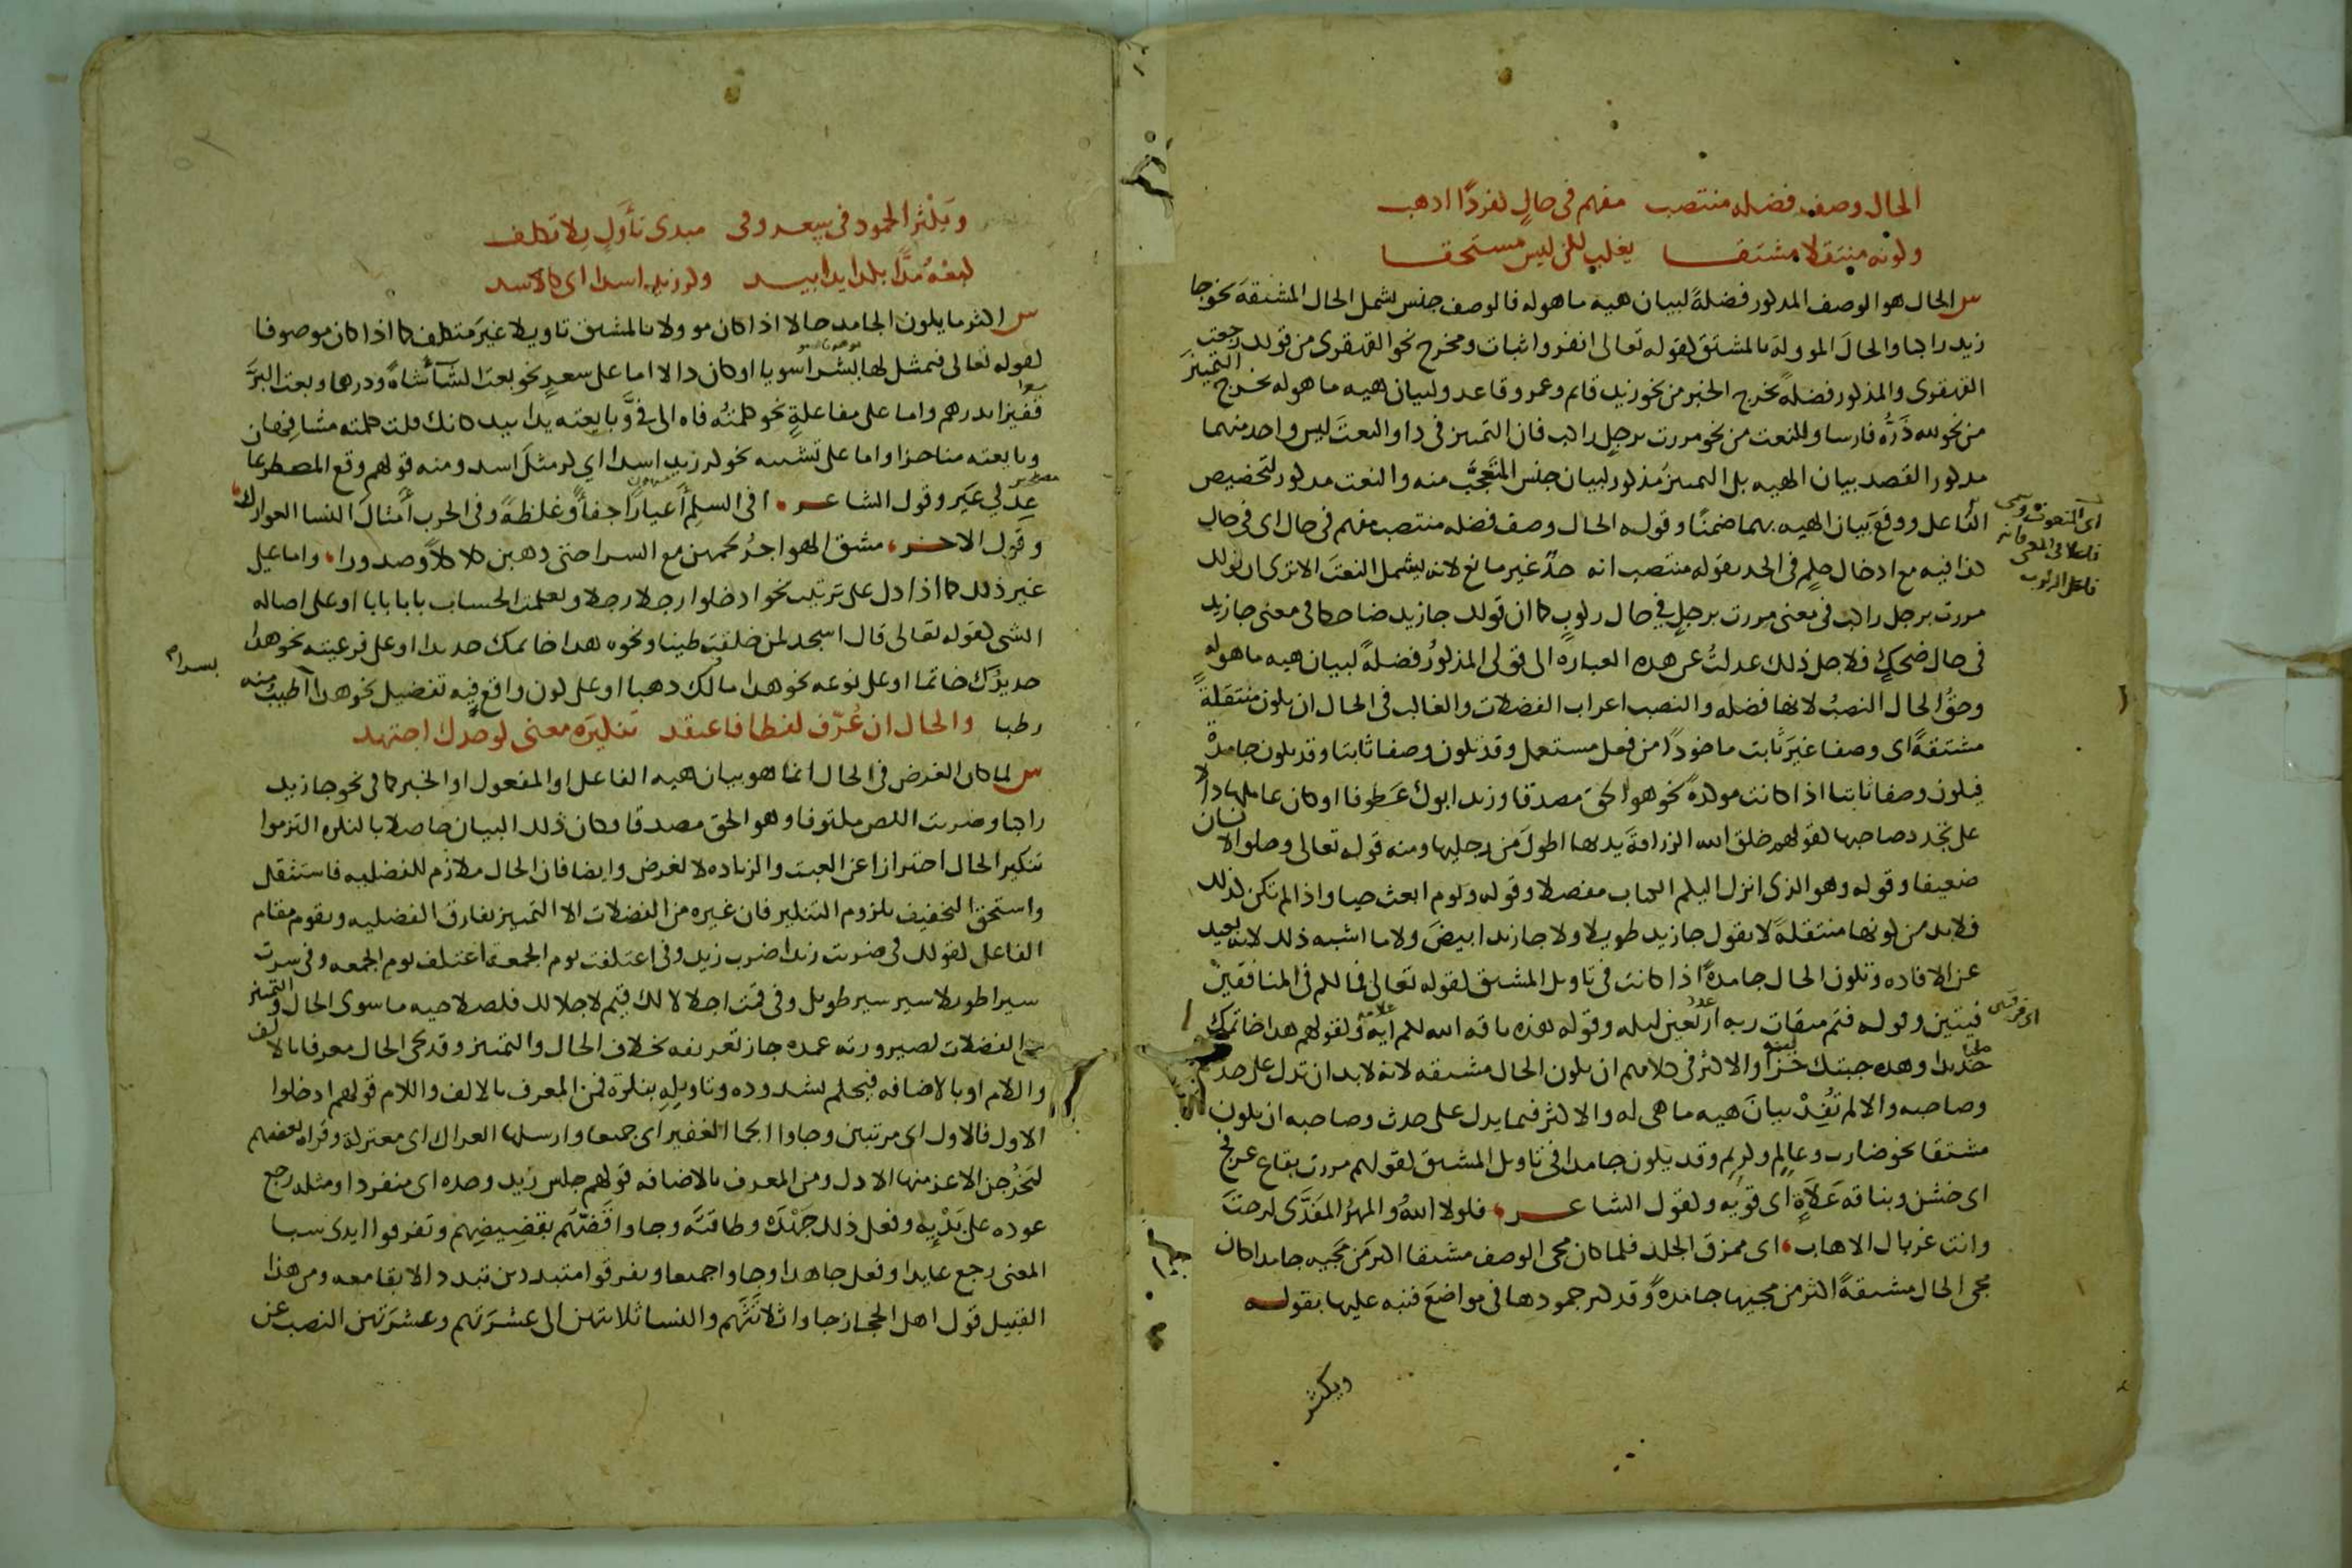 الحال وصف فضله منتصب مفهم فى حالٍ كفردًا اذهب
وكونه منتقلا مشتقا يغلب لكن ليس مستحقا
س الحال هو الوصف المذكور فضلةً لبيان هيه ما هو له فالوصف جنس يشمل الحال المشتقة نحو جا
زيد راكبا والحالَ الموولة بالمشتق كقوله تعالى انفروا ثبات ومخرج نحو القهقرى من قولك رجعت
القهقرى والمذكور فضلةً يخرج الخبر من نحو زيد قايم وعمرو قاعد ولبيان هيه ما هو له يخرج التمييز
من نحو لله دَرُّه فارسا والنعت من نحو مررت برجلٍ راكب فان التمييز فى ذا والنعتَ ليس واحد منهما
مذكور القصد بيان الهيه بل التمييزَ مذكور لبيان جنس المتعجَّب منه والنعت مذكور لتخصيص
الفاعل ووقع بَيان الهيه بهما ضمنًا وقوله الحال وصف فضله منتصب مفهم فى حال اى فى حالِ
اى المنعوت وسمى
فاعلا فى المعنى فانه
فاعل الركوب
كذا فيه مع ادخال حكمٍ فى الحد بقوله منتصب انه حدٌّ غير مانع لانه يشمل النعتَ الا ترى ان قولك
مررت برجل راكبٍ فى معنى مررت برجلٍ فى حال ركوبٍ كما ان قولك جا زيد ضاحكا فى معنى جا زيد
فى حال ضحكٍ فلاجل ذلك عدلتُ عن هذه العباره الى قولى المذكورُ فضلةً لبيان هيه ما هو له
وحقُّ الحال النصبُ لانها فضله والنصب اعراب الفضلات والغالب فى الحال ان يكون منتقلةً
مشتقةً اى وصفا غيرَ ثابت ماخوذًا من فعل مستعمل وقد تكون وصفا ثابتا وقد تكون جامدةً
فيكون وصفا ثابتا اذا كانت موكدةً نحو هو الحق مصدقا وزيد ابوك عَطوفا او كان عاملها دالا
على تجدد صاحبها كقولهم خلق الله الزرافةَ يديها اطولَ من رجليها ومنه قوله تعالى وخلق الانسان
ضعيفا وقوله وهو الذى انزل اليكم الكتاب مفصلا وقوله ويوم ابعث حيا واذا لم تكن كذلك
فلا بد من كونها منتقلةً لا تقول جا زيد طويلا ولا جا زيد ابيضَ ولا ما اشبه ذلك لانه بعيد
عن الافاده وتكون الحال جامدةً اذا كانت فى تاويل المشتق كقوله تعالى فما لكم فى المنافقين
اى فرقتين
فيتين وقوله فتم ميقات ربه اربعين ليله وقوله هذه ناقه الله لكم ايه وكقولهم هذا خاتمك
حديدا وهذه جبتك خزا والاكثر فى كلامهم ان يكون الحال مشتقه لانه لا بد ان تدل على حدث
وصاحبه والا لم تُفِدْ بيانَ هيه ما هى له والاكثر فيما يدل على حدث وصاحبه ان يكون
مشتقا نحو ضارب وعالمٍ وكريم وقد يكون جامدا فى تاويل المشتق كقولهم مررت بقاع عرفج
اى خشن وبناقه عَلاةٍ اى قويه وكقول الشاعر فلولا اللهُ والمهرُ المفدَّى لرحتَ
وانت غربال الاهاب اى ممزق الجلد فلما كان مجى الوصف مشتقا اكثر من مجيه جامدا كان
مجى الحال مشتقةً اكثر من مجيها جامدةً وقد كثر جمودها فى مواضعَ فنبه عليها بقوله
ويكثر
ويَكْثر الجمود فى سِعر وفى مبدى تأَوّلٍ بلا تكلف
كبعْهُ مُدًّا بكذا يدا بيد وكر زيد اسدا اى كاسد
س اكثر ما يكون الجامد حالا اذا كان موولا بالمشتق تاويلا غيرَ متكلف كما اذا كان موصوفا
كقوله تعالى فتمثل لها بشرا سويا او كان دالا اما على سعرٍ نحو بعتُ الشآءَ شاةً ودرهما وبعت البُرَّ
قفيزا بدرهم واما على مفاعلةٍ نحو كلمتُه فاه الى فىَّ وبايعته يدا بيد كانك قلت كلمته مشافهان
وبايعته مناجزا واما على تشبيه نحو كر زيد اسدا اى كر مثلَ اسد ومنه قولهم وقع المصطرعا
عِدلى عَيرٍ وقول الشاعر افى السلمِ أَعيارًا جفآءً وغلظةً وفى الحرب أَمثالَ النسا العوارك
وقول الاخر مشق الهواجرُ لحمهن مع السرا حتى ذهبن كلاكلاً وصدورا واما على
غير ذلك كما اذا دل على ترتيب نحو ادخلوا رجلا رجلا وتعلمت الحساب بابا بابا او على اصاله
الشى كقوله تعالى قال اسجد لمن خلقت طينا ونحوه هذا خاتمك حديدا او على فرعيته نحو هذا
حديدُك خاتما او على نوعه نحو هذا مالك ذهبا او على كون واقع فيه تفضيل نحو هذا اطيب منه
بسرا
رطبا والحال ان عُرّف لفظا فاعتقد تنكيرَه معنى كوحدك اجتهد
س لما كان الغرض فى الحال انما هو بيان هيه الفاعل او المفعول او الخبر كما فى نحو جا زيد
راكبا وضربت اللص مكتوفا وهو الحق مصدقا وكان ذلك البيان حاصلا بالنكره التزموا
تنكير الحال احترازا عن العبث والزياده لا لغرض وايضا فان الحال ملازم للفضليه فاستثقل
واستحق التخفيف بلزوم التنكير فان غيره من الفضلات الا التمييز يفارق الفضليه ويقوم مقام
الفاعل كقولك فى ضربت زيدا ضرب زيد وفى اعتكفت يوم الجمعة اعتكف يوم الجمعه وفى سرت
سيرا طويلا سير سير طويل وفى قمت اجلالا لك قيم لاجلالك فلصلاحيه ما سوى الحال والتمييز
من الفضلات لصيرورته عمده جاز تعريفه بخلاف الحال والتمييز وقد يجى الحال معرفا بالالف
واللام او بالاضافه فيحكم بشذوذه وتاويله بنكرة فمن المعرف بالالف واللام قولهم ادخلوا
الاول فالاول اى مرتبين وجاوا الجما الغفير اى جميعا وارسلها العراك اى معتركة وقراه بعضهم
ليَخْرُجن الاعز منها الاذل ومن المعرف بالاضافه قولهم جلس زيد وحده اى منفردا ومثله رجع
عوده على بَدْيِه وفعل ذلك جَهْدَه وطاقتَه وجاوا قَضَّهم بقضِيضِهم وتفرقوا ايدى سبا
المعنى رجع عايدا وفعل جاهدا وجاوا جميعا وتفرقوا متبددين تبددا لا بقا معه ومن هذا
القبيل قول اهل الحجاز جاوا ثلاثَتَهم والنسا ثلاثتهن الى عشرَتهم وعشرَتهن النصب عن